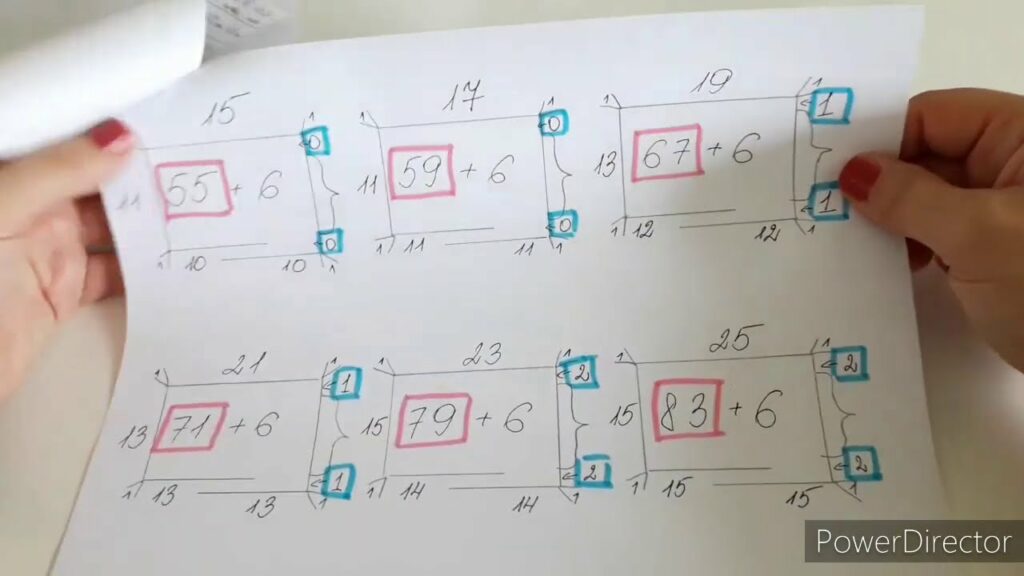 15 17 19
1 1 1 1 1
0 0 1
11 55 + 6 11 59 + 6 13 67 + 6
0 0 1
1 10 10 1 1 11 11 1 1 12 12 1
21 23 25
1 1 1 1 1 1
1 2 2
13 71 + 6 15 79 + 6 15 83 + 6
1 2 2
1 13 13 1 1 14 14 1 1 15 15 1
PowerDirector